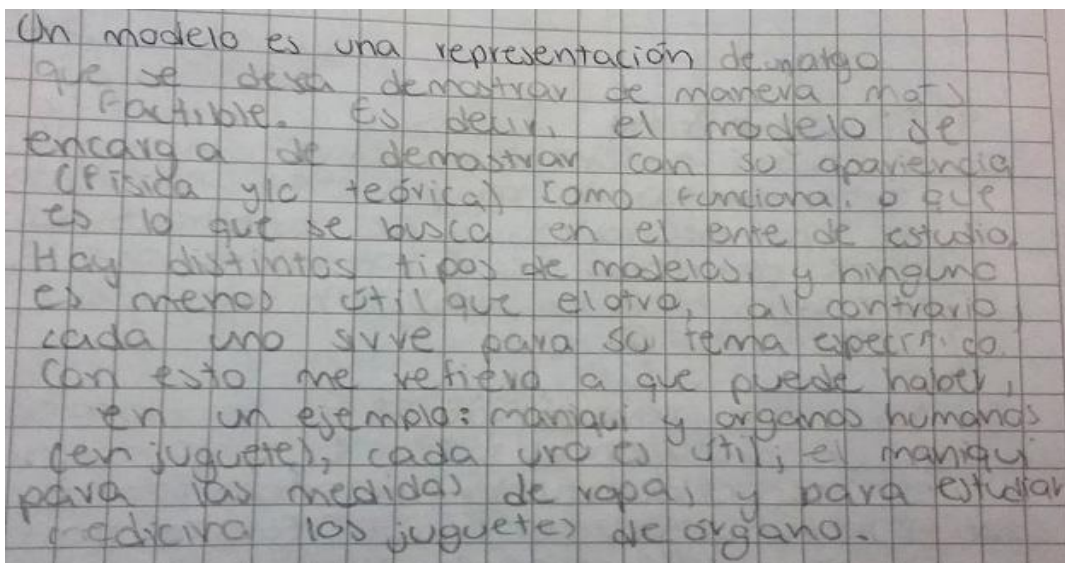 Un modelo es una representación de algo
que se desea demostrar de manera mas
factible. Es decir, el modelo se
encarga de demostrar con su apariencia
(física y/o teórica) como funciona, o que
es lo que se busca en el ente de estudio
Hay distintos tipos de modelos, y ninguno
es menos útil que el otro, al contrario
cada uno sirve para su tema específico.
Con esto me refiero a que puede haber,
en un ejemplo: maniqui y organos humanos
juguetes, cada uno es útil, el maniqui
para las medidas de ropa, y para estudiar
medicina los juguetes de organo.